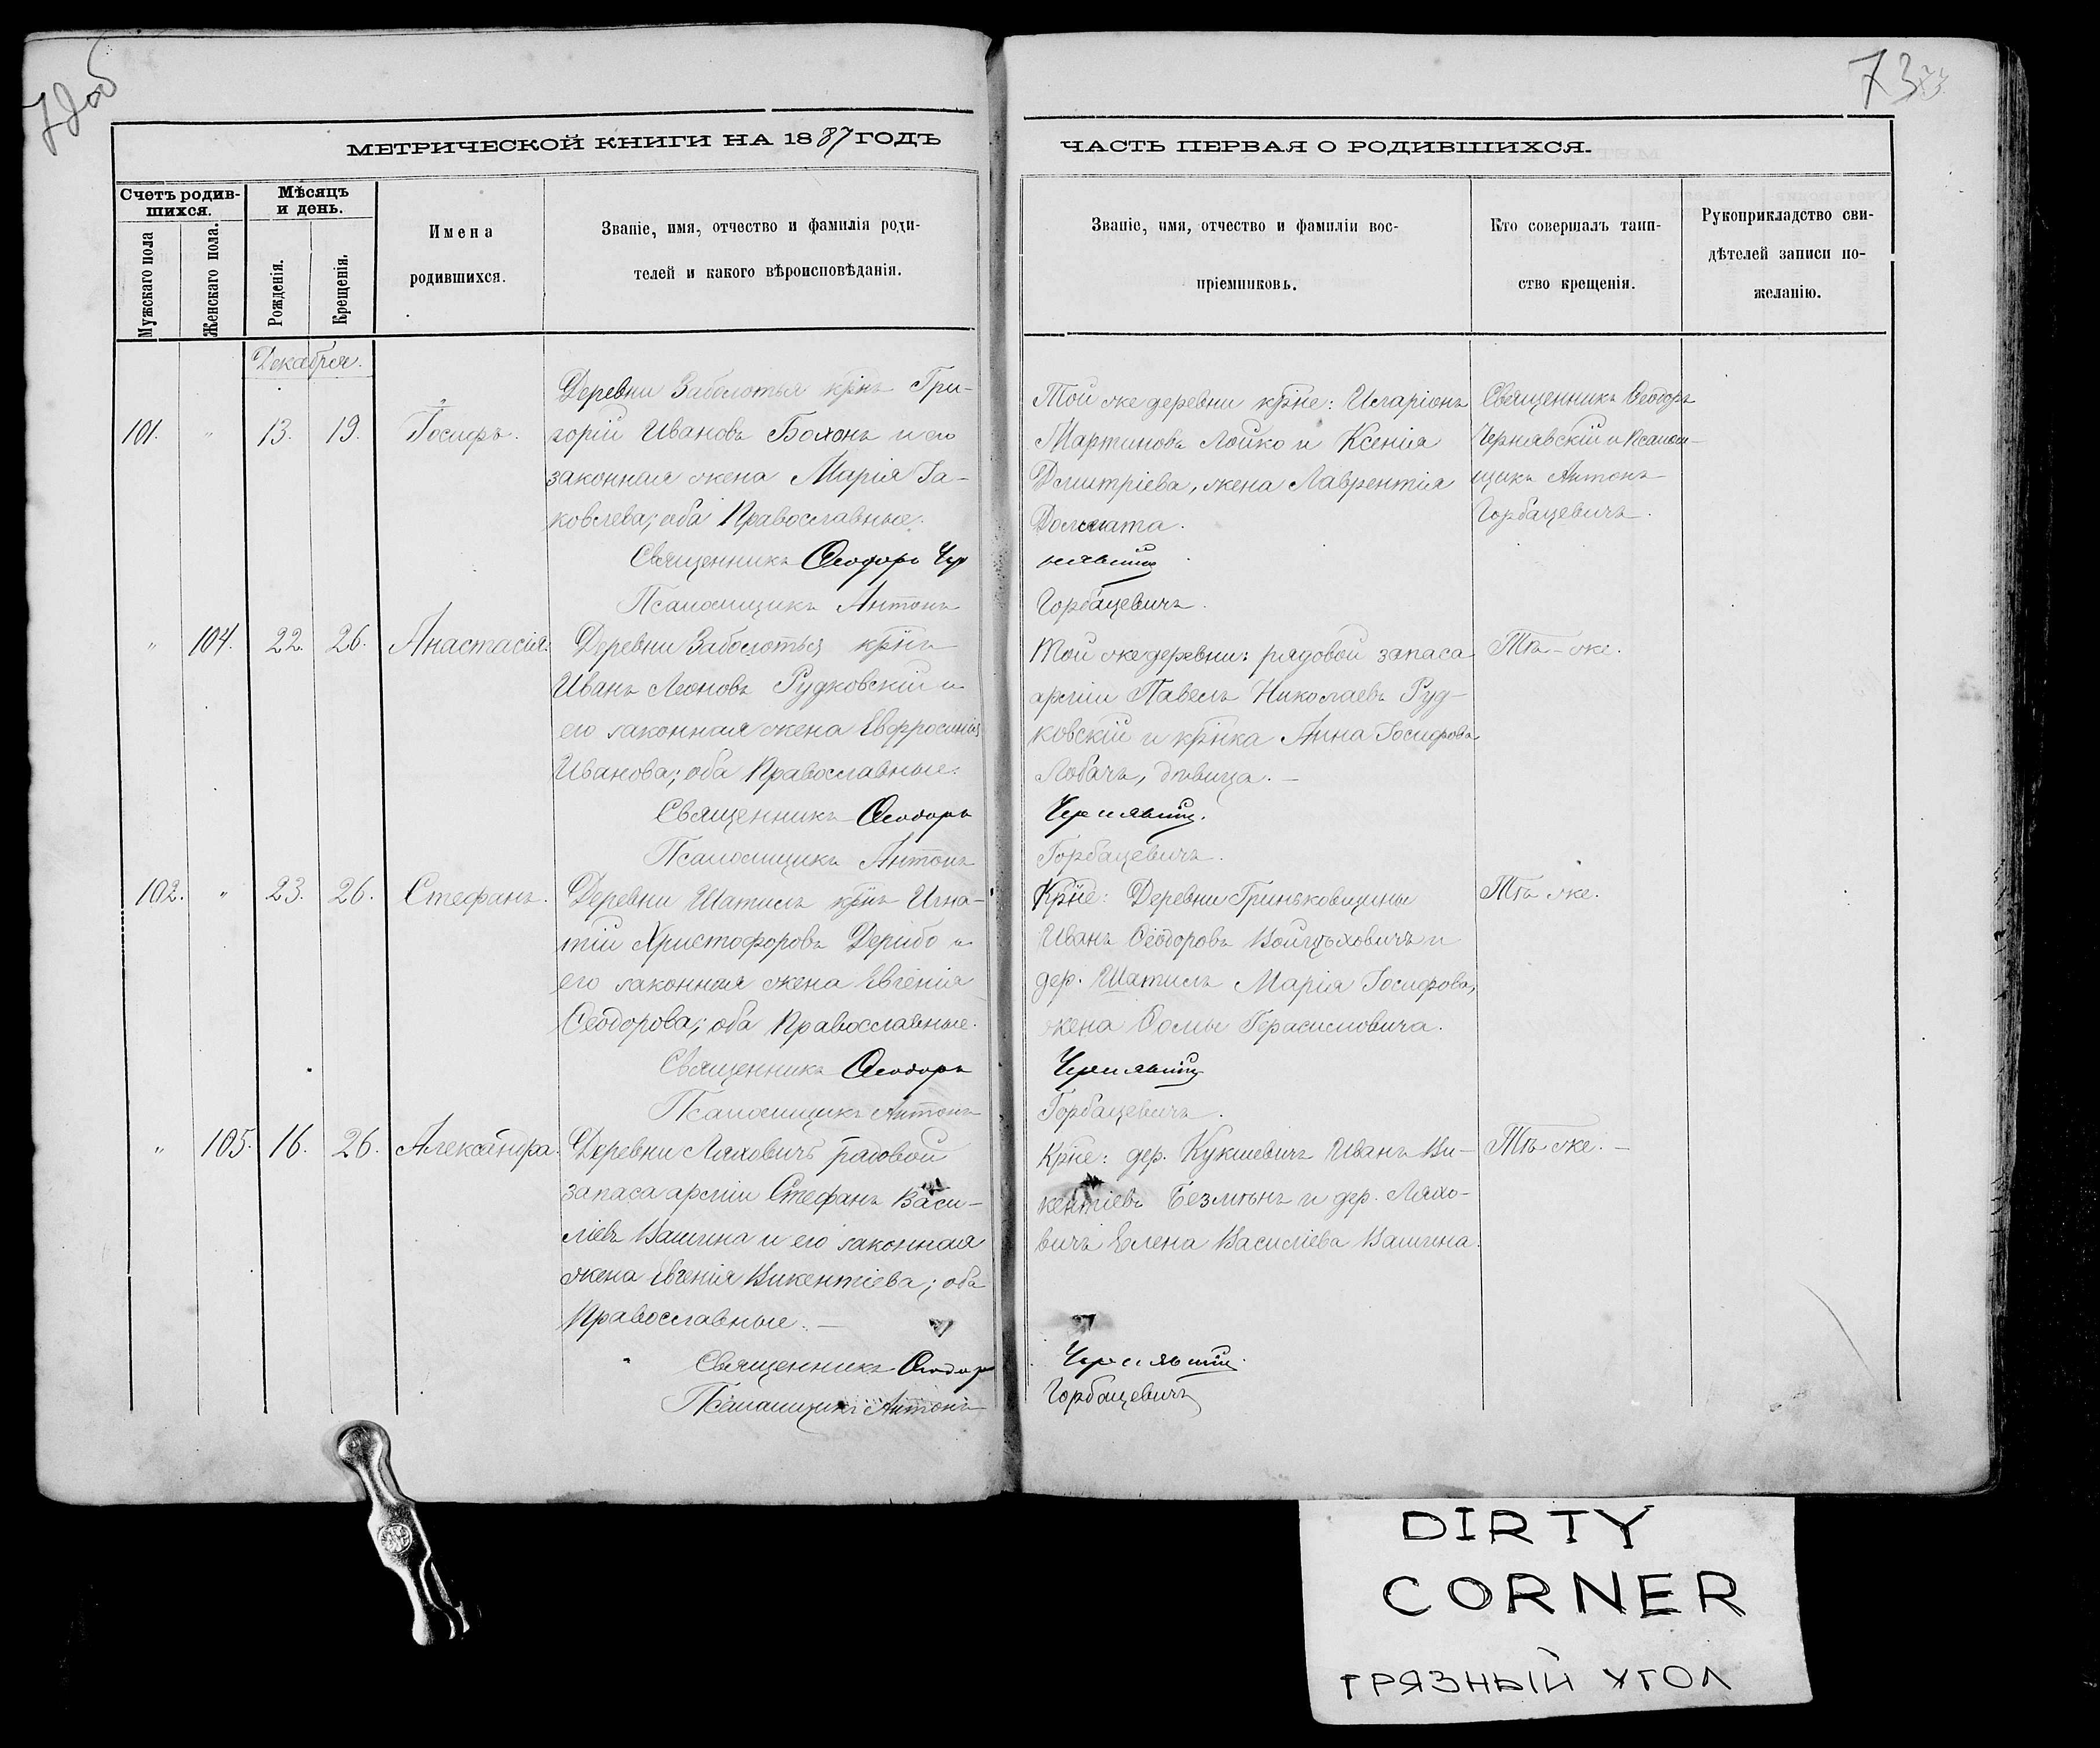 72об
73
МЕТРИЧЕСКОЙ КНИГИ НА 1887 ГОДЪ
ЧАСТЬ ПЕРВАЯ О РОДИВШИХСЯ.
Счетъ родив-
шихся.
Мужскаго пола
Женскаго пола.
Мѣсяцъ
и день.
Рожденія.
Крещенія.
Имена
родившихся.
Званіе, имя, отчество и фамилія роди-
телей и какого вѣроисповѣданія.
Званіе, имя, отчество и фамиліи вос-
пріемниковъ.
Кто совершалъ таин-
ство крещенія.
Рукоприкладство сви-
дѣтелей записи по-
желанію.
Декабря.
101. " 13. 19. Іосифъ.
Деревни Заболотья крнъ Гри-
горій Ивановъ Болонъ и его
законная жена Марія Іа-
ковлева; оба Православные.
Священникъ Ѳеодоръ Чер
Псаломщикъ Антонъ
Той же деревни крне: Иларіонъ
Мартиновъ Лойко и Ксенія
Димитріева, жена Лаврентія
нявскій
Горбацевичъ.
Священникъ Ѳеодоръ
Чернявскій и Псалом-
щикъ Антонъ
Горбацевичъ.
" 104. 22. 26. Анастасія.
Деревни Заболотья крнъ
Иванъ Леоновъ Рудковскій и
его законная жена Евфросинія
Иванова; оба Православные.
Священникъ Ѳеодоръ
Псаломщикъ Антонъ
Той же деревни: рядовой запаса
арміи Павелъ Николаевъ Руд-
ковскій и крнка Анна Іосифова
Лобачъ, дѣвица. —
Чернявскій.
Горбацевичъ.
Тѣ-же.
102. " 23. 26. Стефанъ.
Деревни Шатилъ крнъ Игна-
тій Христофоровъ Дерибо и
его законная жена Евгенія
Ѳеодорова; оба Православные.
Священникъ Ѳеодоръ
Псаломщикъ Антонъ
Крне: Деревни Гриньковщины
Иванъ Ѳеодоровъ Войцѣховичъ и
дер. Шатилъ Марія Іосифова,
жена Ѳомы Герасимовича.
Чернявскій
Горбацевичъ.
Тѣ же.
" 105. 16. 26. Александра.
Деревни Ляховичъ рядовой
запаса арміи Стефанъ Васи-
ліевъ Вашина и его законная
жена Евгенія Викентіева; оба
Православные. —
Священникъ Ѳеодоръ
Псаломщикъ Антонъ
Крне: дер. Кукшевичъ Иванъ Ви-
кентіевъ Безмѣнъ и дер. Ляхо-
вичъ Елена Василіева Вашина.
Чернявскій.
Горбацевичъ
Тѣ же. —
DIRTY
CORNER
ГРЯЗНЫЙ УГОЛ